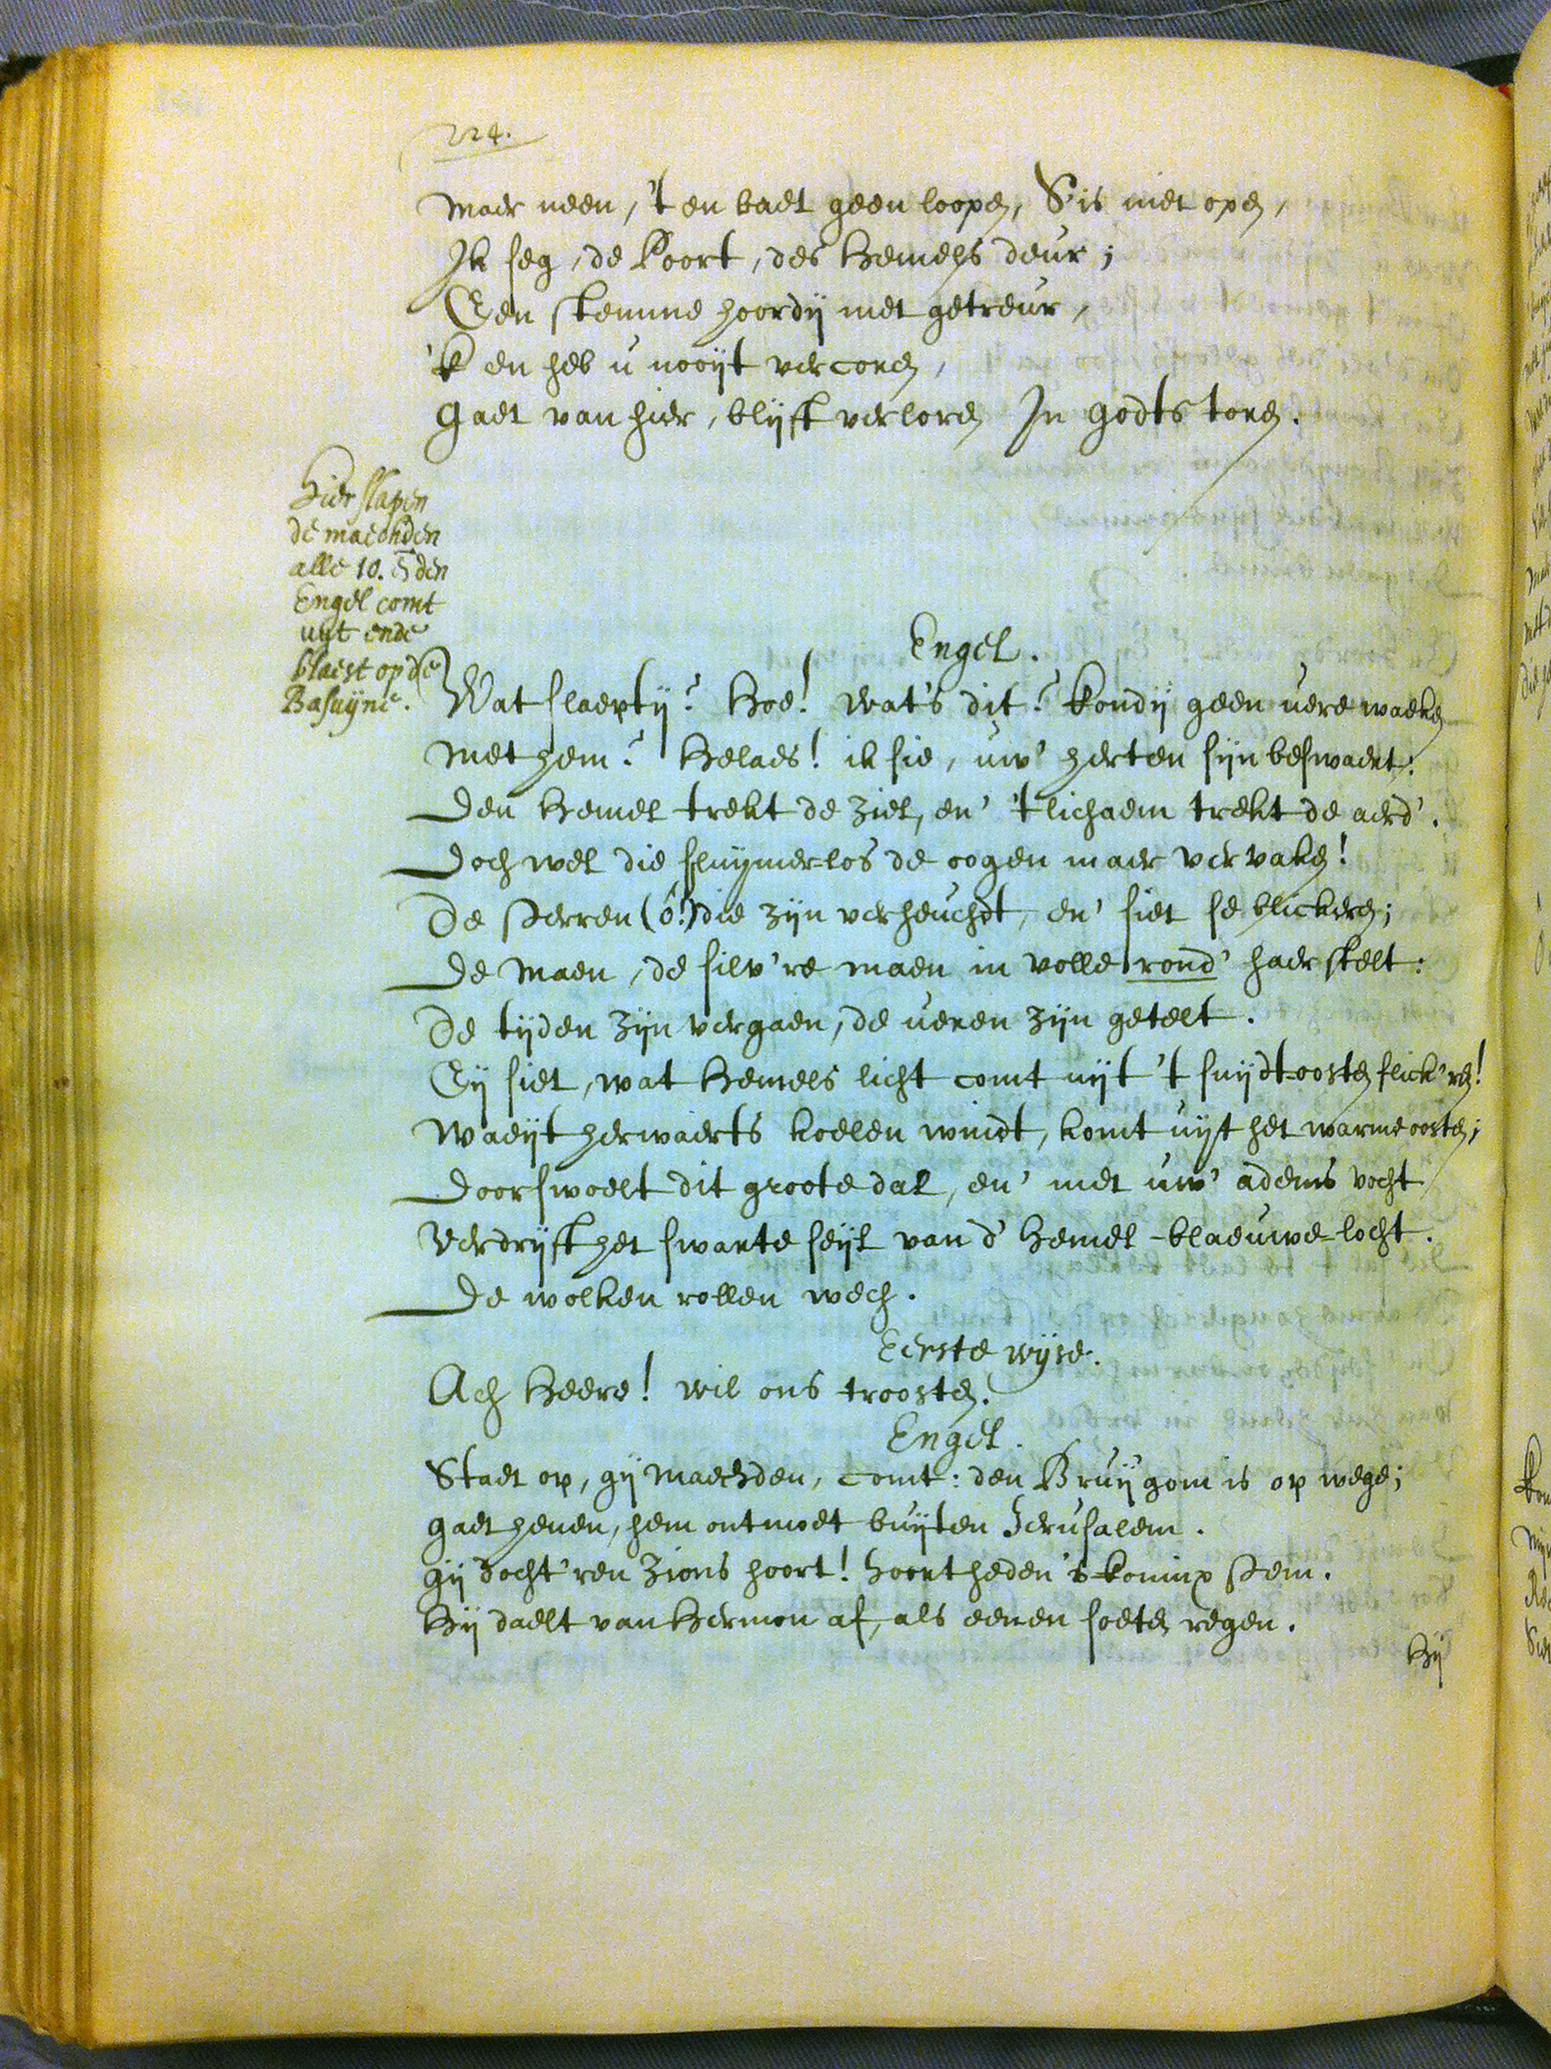 224.
Maer neen, 't en baet geen loopen, S'is niet open,
Ik seg, de Poort, des Hemels deur;
Een stemme hoordij met getreur,
'k en heb u nooijt vercoren,
Gaet van hier, blijft verloren In Godts toren.
Hier slapen
de maechden
alle 10. en den
Engel comt
uyt ende
blaest op de
Basuijne.
Engel.
Wat slaeptij? Hoe! wat's dit? kondij geen uere waeken
Met hem? Helaes! ik sie, uw' herten sijn beswaert:
Den Hemel trekt de ziel, en' 't lichaem trekt de aerd'.
Doch wel die sluijmerlos de oogen maer vervaken!
De sterren (ô!) die zijn verheucht, en' siet se blickeren;
De Maen, de silv're maen in volle rond' haer stelt:
De tijden zijn vergaen, de ueren zijn getelt.
Eij siet, wat Hemels licht comt uijt 't suijdt-oosten flick'ren!
Waeijt herwaerts koelen windt, komt uijt het warme oosten;
Doorswoelt dit groote dal, en' met uw' adems vocht
Verdrijft het swarte seijl van d' hemel-blaeuwe-locht.
De wolken rollen wech.
Eerste wijse.
Ach Heere! wil ons troosten.
Engel.
Staet op, gij Maechden, comt: den Bruijgom is op wege;
Gaet henen, hem ontmoet buijten Jerusalem.
Gij docht'ren Zions hoort! hoort heden 's konincx stem.
Hij daelt van Hermon af, als eenen soeten regen.
Hij